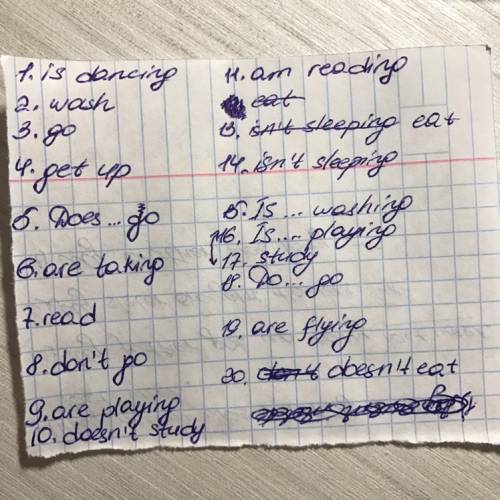 1. is dancing
2. wash
3. go
4. get up
5. Does... go
6. are taking
7. read
8. don't go
9. are playing
10. doesn't study
11. am reading
eat
13. isn't sleeping eat
14. isn't sleeping
15. Is ... washing
16. Is ... playing
17. study
8. Do... go
19. are flying
20. don't doesn't eat